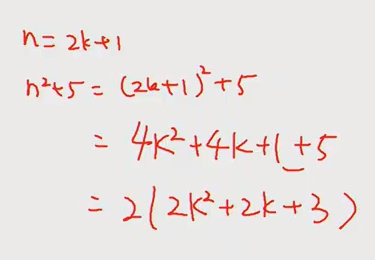 n = 2k+1
n²+5 = (2k+1)²+5
= 4k²+4k+1+5
= 2(2k²+2k+3)